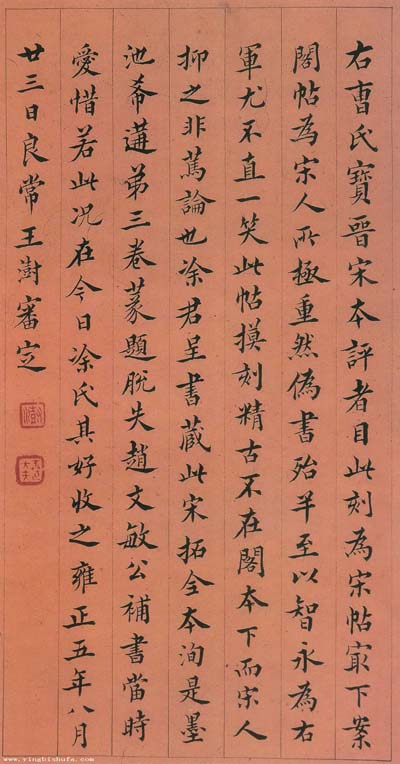 右曹氏寶晉宋本評者目此刻為宋帖冣下案
閣帖為宋人所極重然偽書殆半至以智永為右
軍尤不直一笑此帖摸刻精古不在閣本下而宋人
抑之非篤論也涂君呈書藏此宋拓全本洵是墨
池希遘弟三卷篆題脫失趙文敏公補書當時
愛惜若此況在今日涂氏其好收之雍正五年八月
廿三日良常王澍審定
澍
www.yingbishufa.com